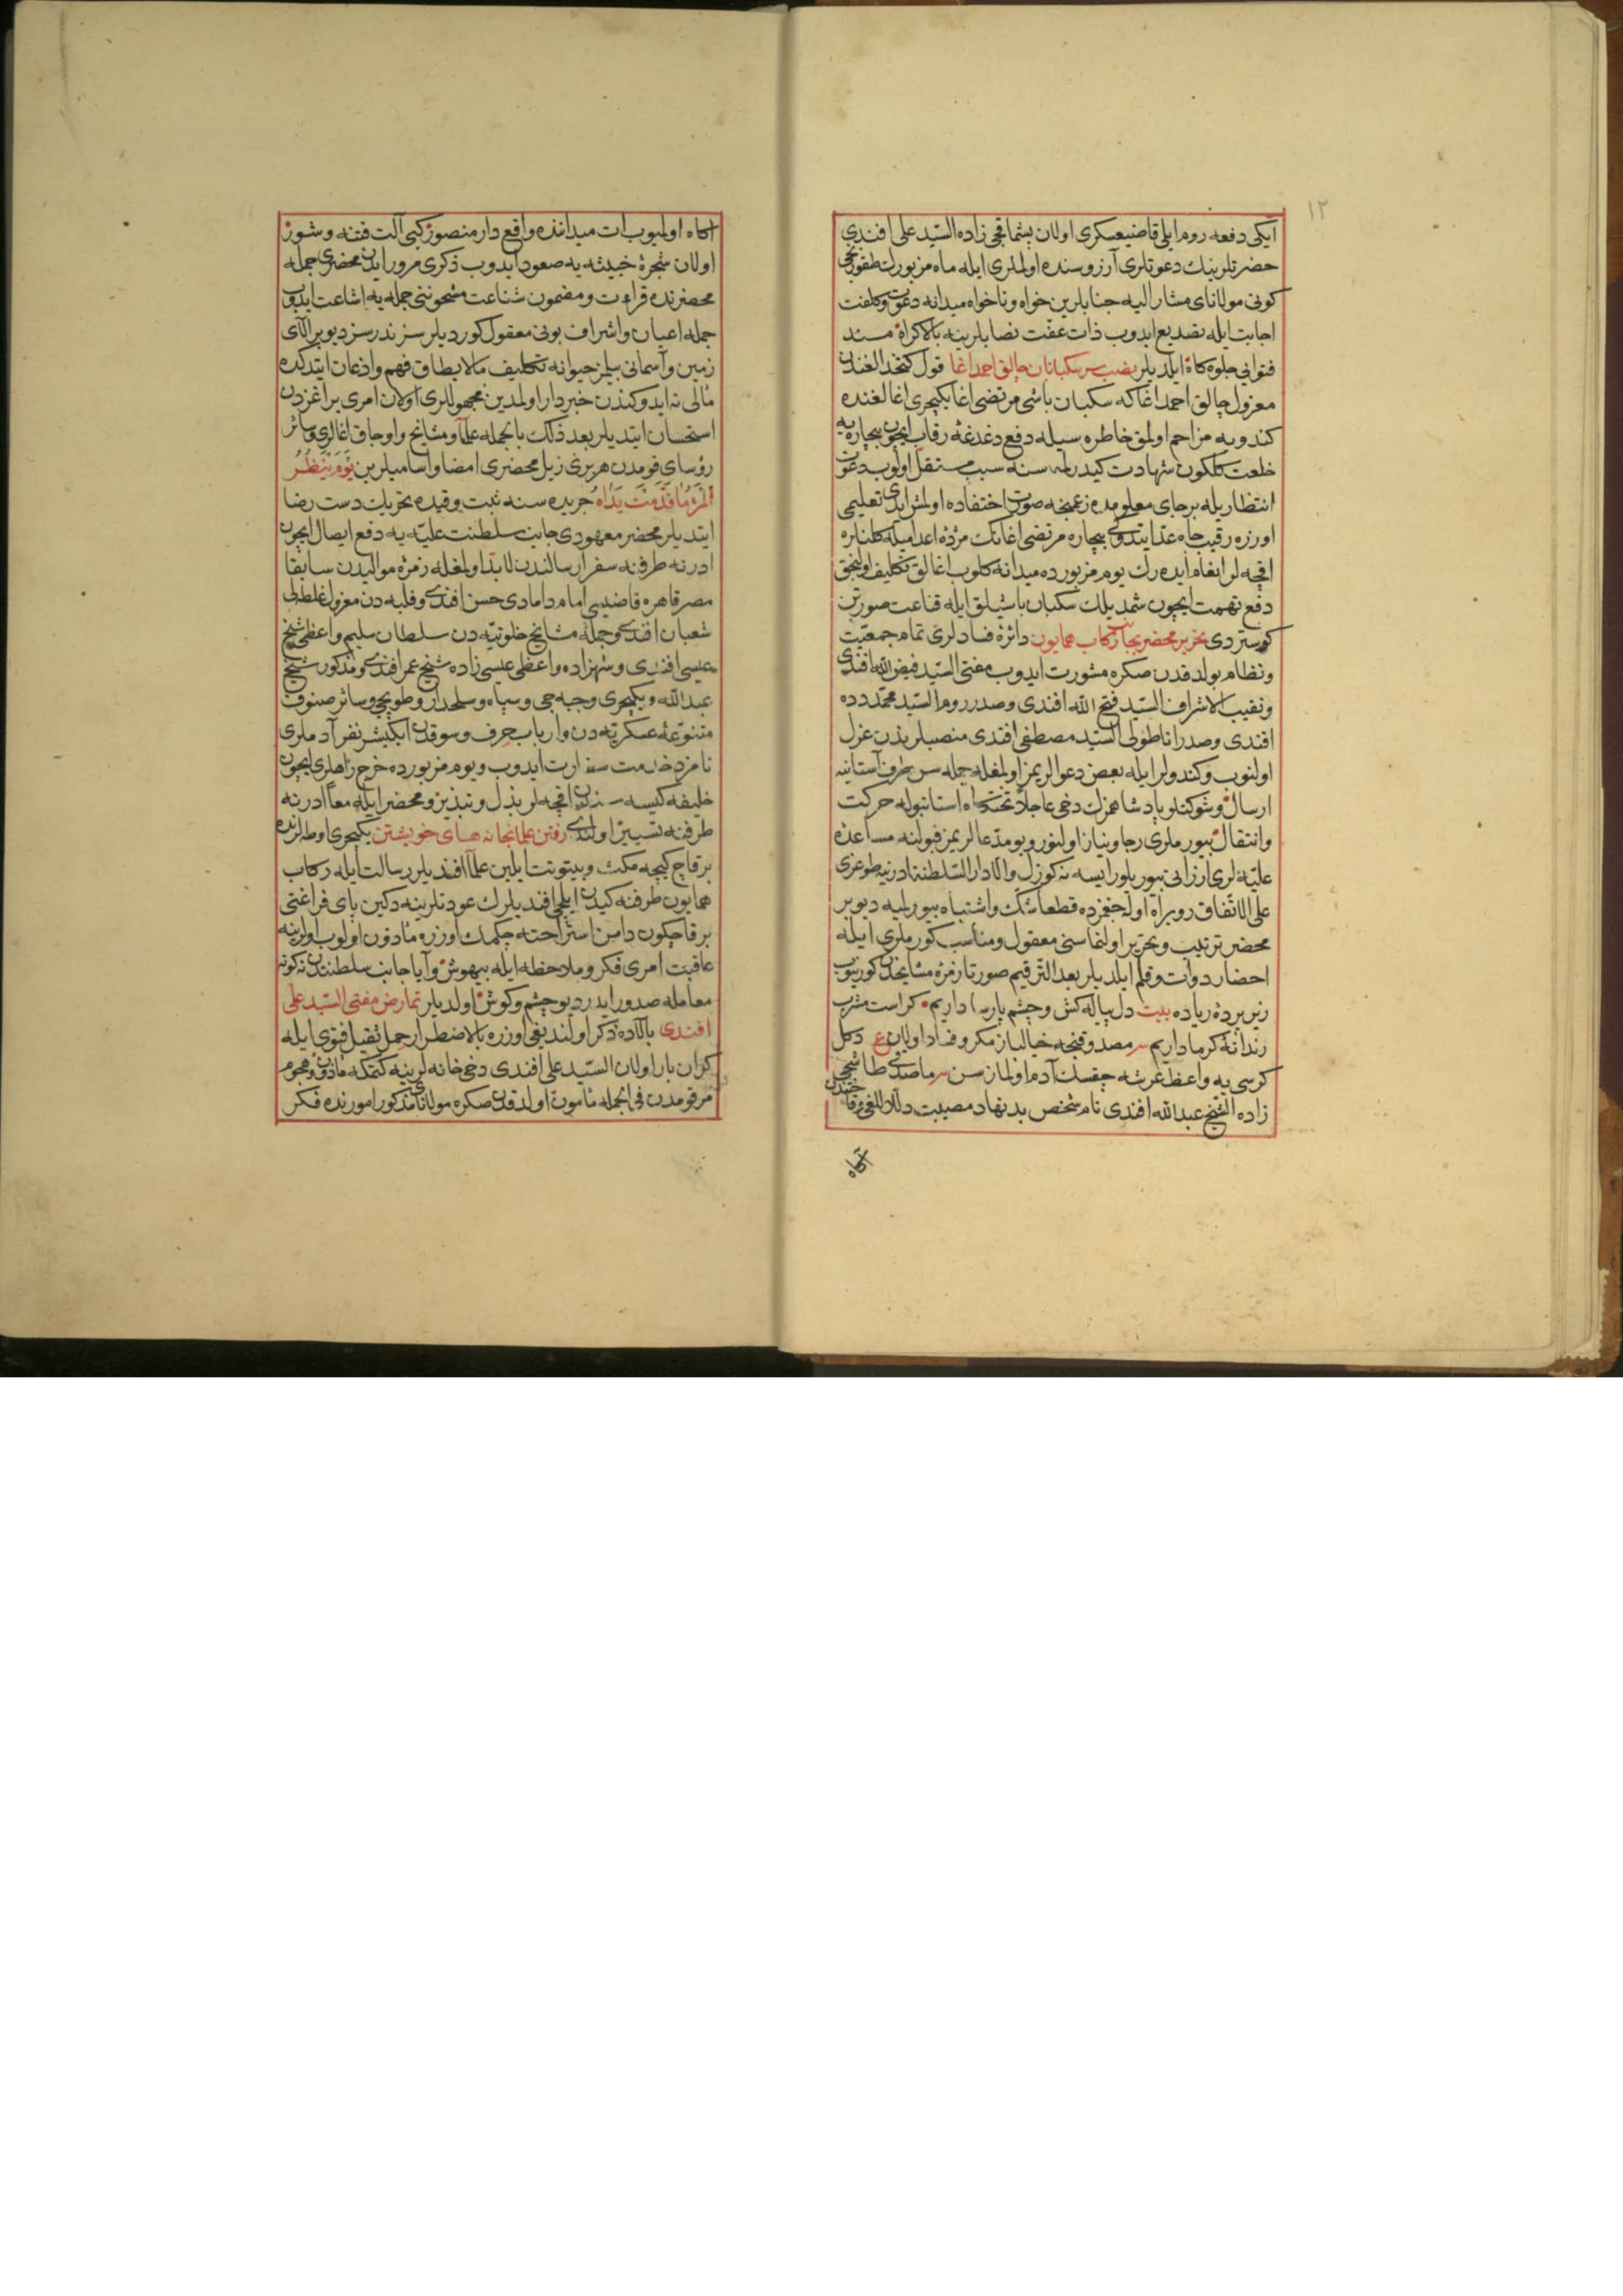 ١٢
ایکی دفعه روم ایلی قاضیعسکری اولان پشماقچی زاده السید علی افندی
حضرتلرینك دعوتلری آرزوسنده اولملری ایله ماه مزبورك طقوزنجی
کونی مولانای مشار الیه جنابلرین خواه و ناخواه میدانه دعوت و کلفت
اجابت ایله تصدیع ایدوب ذات عفت نصابلرینه بالاکراه مسند
فتوایی جلوه کاه ایلدیلر نصب سر سکبانان چالق احمد اغا قول کتخدالغندن
معزول چالق احمد اغا که سکبان باشی مرتضی اغا یکیچری اغالغنده
کندویه مزاحم اولمق خاطره سیله دفع دغدغۀ رقابت ایچون بیچاره یه
خلعت کلکون شهادت کیدرلمه سنه سبب مستقل اولوب دعوت
انتظاریله بر جای معلومده زعمنجه صورت اختفاده اولمش ایدی تعلیمی
اوزره رقیب جاه عد ایتدوکی بیچاره مرتضی اغانك مژدۀ اعدامیله کلنلره
اقچه لر انعام ایده رك یوم مزبورده میدانه کلوب اغالق تکلیف اولنجق
دفع تهمت ایچون شمدیلك سکبان باشیلق ایله قناعت صورتن
کوستردی تحریر محضر بجانب رکاب همایون دائرۀ فسادلری تمام جمعیت
و نظام بولدقدن صکره مشورت ایدوب مفتی السید فیض الله افندی
و نقیب الاشراف السید فتح الله افندی و صدر روم السید محمد دده
افندی و صدر اناطولی السید مصطفی افندی منصبلرندن عزل
اولنوب و کندولر ایله بعض دعوالریمز اولمغله جمله سن طرف آستانیه
ارسال و شوکتلو پادشاهمزك دخی عاجلا تختکاه استانبوله حرکت
و انتقال بیورملری رجا و نیاز اولنور و بو مدعالریمز قبولنه مساعدۀ
علیه لری ارزانی بیوریلور ایسه نه کوزل و الا دار السلطنة ادرنیه طوغری
علی الاتفاق رو براه اوله جغمزده قطعا شك و اشتباه بیورلمیه دیو بر
محضر ترتیب و تحریر اولنماسنی معقول و مناسب کورملری ایله
احضار دوات و قلم ایلدیلر بعد الترقیم صورتا زمرۀ مشایخدن کورینوب
زیر پردۀ ریاده بیت دل پیاله کش و چشم پارسا داریم کراست مشرب
رندانۀ که ما داریم مصدوقنجه خیالباز مکر و فساد اولان ع دکل
کرسی یه واعظ عرشه چقسك آدم اولمازسن ماصدقی طاشجی
زاده الشیخ عبد الله افندی نام شخص بدنهاد مصیبت دلال للغی
آکاه
آکاه اولمیوب ات میداننده واقع دار منصور کبی آلت فتنه و شور
اولان شجرۀ خبیثه یه صعود ایدوب ذکری مرور ایدن محضری جمله
محضرنده قراءت و مضمون شناعت مشحوننی جمله یه اشاعت ایدوب
جمله اعیان و اشراف بونی معقول کوردیلر سز نه درسز دیو بر آلای
زمین و آسمانی بیلمز حیوانه تکلیف مالا یطاق فهم و اذعان ایتدکده
مآلی نه ایدوکندن خبردار اولمدین مجهوللری اولان امری بر اغزدن
استحسان ایتدیلر بعد ذلك بالجمله علما و مشایخ و اوجاق اغالری و سائر
رؤسای قومدن هر بری زیل محضری امضا و اسامیلرین یَوْمَ یَنْظُرُ
الْمَرْءُ مَا قَدَّمَتْ یَدَاهُ جریده سنه ثبت و قیده تحریك دست رضا
ایتدیلر محضر معهودی جانب سلطنت علیه یه دفع ایصال ایچون
ادرنه طرفنه سفرا ارسالندن لابد اولمغله زمرۀ موالیدن سابقا
مصر قاهره قاضیسی امام دامادی حسن افندی و فلبه دن معزول غلطه لی
شعبان افندی و جملۀ مشایخ خلوتیه دن سلطان سلیم واعظی شیخ
عیسی افندی و شهزاده واعظی عیسی زاده شیخ عمر افندی و مذکور شیخ
عبد الله و یکیچری و جبه جی و سپاه و سلحدار و طوپجی و سائر صنوف
متنوعۀ عسکریه دن و ارباب حرف و سوقدن ایکیشر نفر آدملری
نامزد خدمت سفارت ایدوب و یوم مزبورده خرج راهلری ایچون
خلیفه کیسه سندن اقچه لر بذل و تبذیر و محضر ایله معا ادرنه
طرفنه تسییر اولندی رفتن علما بخانه های خویشتن یکیچری اوطه لرنده
بر قاچ کیجه مکث و بیتوتت ایلین علما افندیلر رسالت ایله رکاب
همایون طرفنه کیدن ایلچی افندیلرك عودتلرینه دکین پای فراغتی
بر قاچکون دامن استراحته چکمك اوزره مأذون اولوب اولرینه
عاقبت امری فکر و ملاحظه ایله بیهوش و آیا جانب سلطنتدن نه کونه
معامله صدور ایدر دیو چشم و کوش اولدیلر تمارض مفتی السید علی
افندی بالاده ذکر اولندیغی اوزره بالاضطرار حمل ثقیل فتوی ایله
کران بار اولان السید علی افندی دخی خانه لرینه کتمکه مأذون و هجوم
مرقومدن فی الجمله مأمون اولدقدن صکره مولانای مذکور امورنده فکر